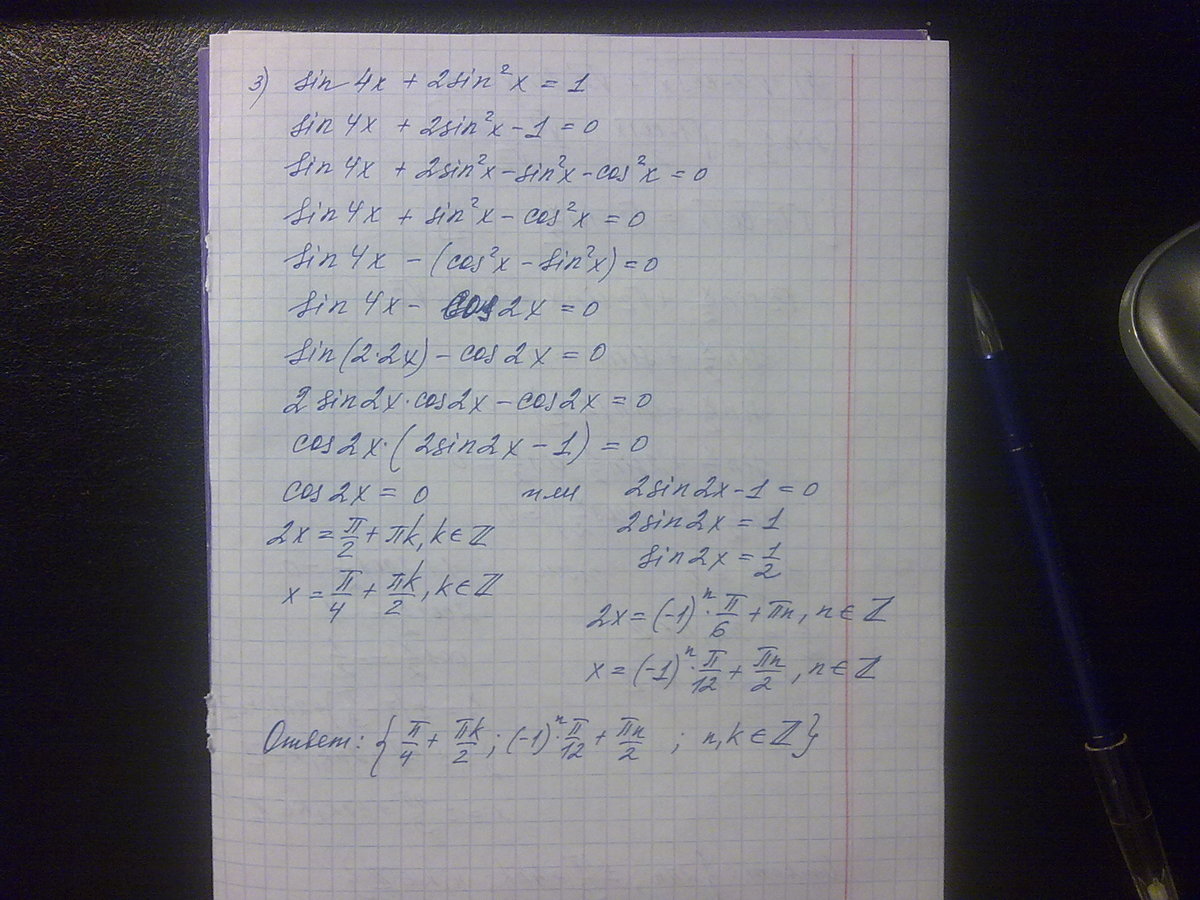 3) sin 4x + 2sin²x = 1
sin 4x + 2sin²x - 1 = 0
sin 4x + 2sin²x - sin²x - cos²x = 0
sin 4x + sin²x - cos²x = 0
sin 4x - (cos²x - sin²x) = 0
sin 4x - cos 2x = 0
sin(2·2x) - cos 2x = 0
2 sin2x·cos2x - cos2x = 0
cos2x·(2sin2x - 1) = 0
cos 2x = 0 или 2sin2x - 1 = 0
2x = π/2 + πk, k ∈ ℤ 2sin2x = 1
sin2x = 1/2
x = π/4 + πk/2, k ∈ ℤ
2x = (-1)ⁿ · π/6 + πn, n ∈ ℤ
x = (-1)ⁿ · π/12 + πn/2, n ∈ ℤ
Ответ: {π/4 + πk/2; (-1)ⁿ · π/12 + πn/2 ; n, k ∈ ℤ}